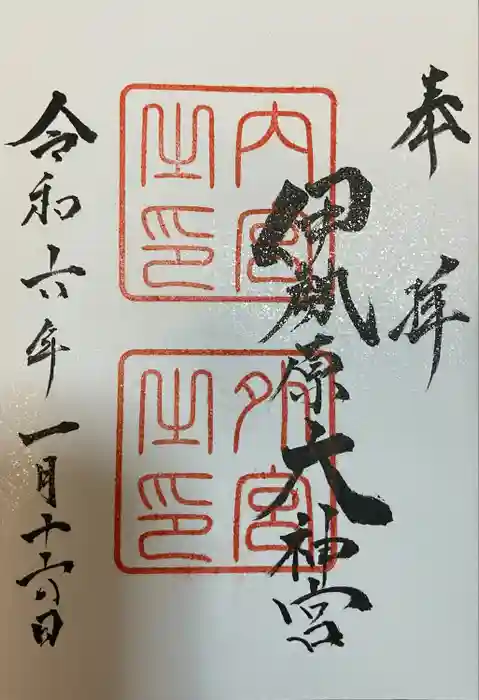 奉拝
伊勢原大神宮
内宮
之印
外宮
之印
令和六年一月十六日